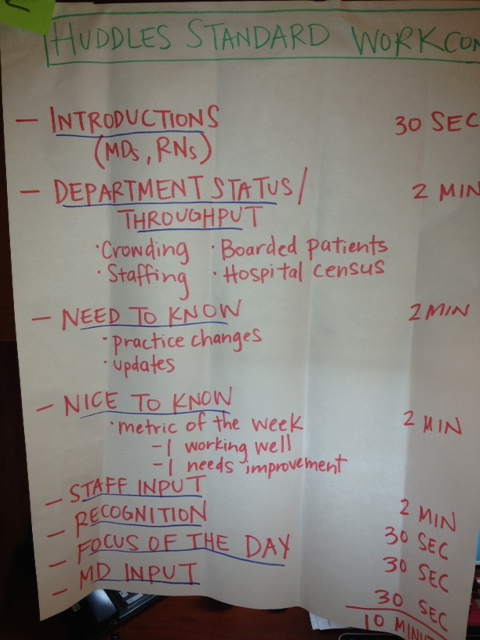 HUDDLES STANDARD WORK
– INTRODUCTIONS 30 SEC
(MDs, RNs)
– DEPARTMENT STATUS/ 2 MIN
THROUGHPUT
·Crowding ·Boarded patients
·Staffing ·Hospital census
– NEED TO KNOW 2 MIN
·practice changes
·updates
– NICE TO KNOW 2 MIN
·metric of the week
–1 working well
–1 needs improvement
– STAFF INPUT 2 MIN
– RECOGNITION 30 SEC
– FOCUS OF THE DAY 30 SEC
– MD INPUT 30 SEC
10